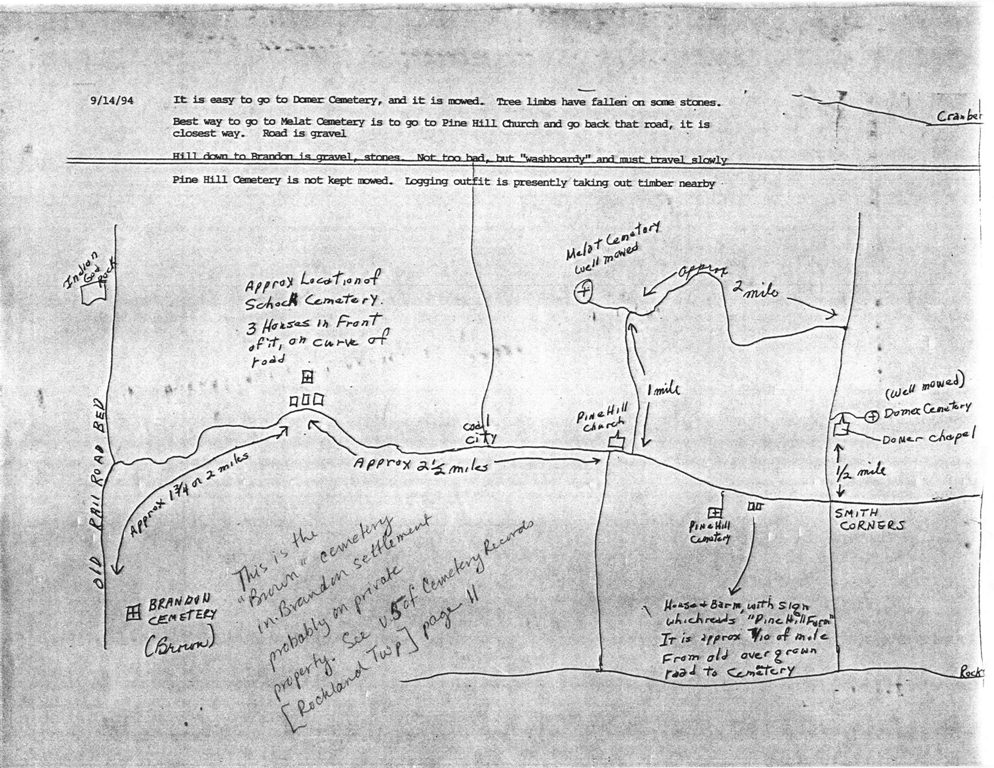 9/14/94 It is easy to go to Domer Cemetery, and it is mowed. Tree limbs have fallen on some stones.
Best way to go to Melat Cemetery is to go to Pine Hill Church and go back that road, it is
closest way. Road is gravel
Hill down to Brandon is gravel, stones. Not too bad, but "washboardy" and must travel slowly
Pine Hill Cemetery is not kept mowed. Logging outfit is presently taking out timber nearby
Cranber
Indian
God
Rock
Approx Location of
Schock Cemetery.
3 Houses in Front
of it, on curve of
road
Melat Cemetery
Well mowed
approx
2 mile
1 mile
(Well mowed)
Domer Cemetery
Domer chapel
1/2 mile
SMITH
CORNERS
Pine Hill
Church
coal
city
Approx 2 1/2 miles
Approx 1 3/4 or 2 miles
OLD RAIL ROAD BED
Pine Hill
Cemetery
BRANDON
CEMETERY
(Brown)
This is the
"Brown" cemetery
in Brandon settlement
probably on private
property. See V.5 of Cemetery Records
[Rockland Twp] page 11
House & Barn, with sign
which reads "Pine Hill Farm"
It is approx 7/10 of mile
From old over grown
road to Cemetery
Rock